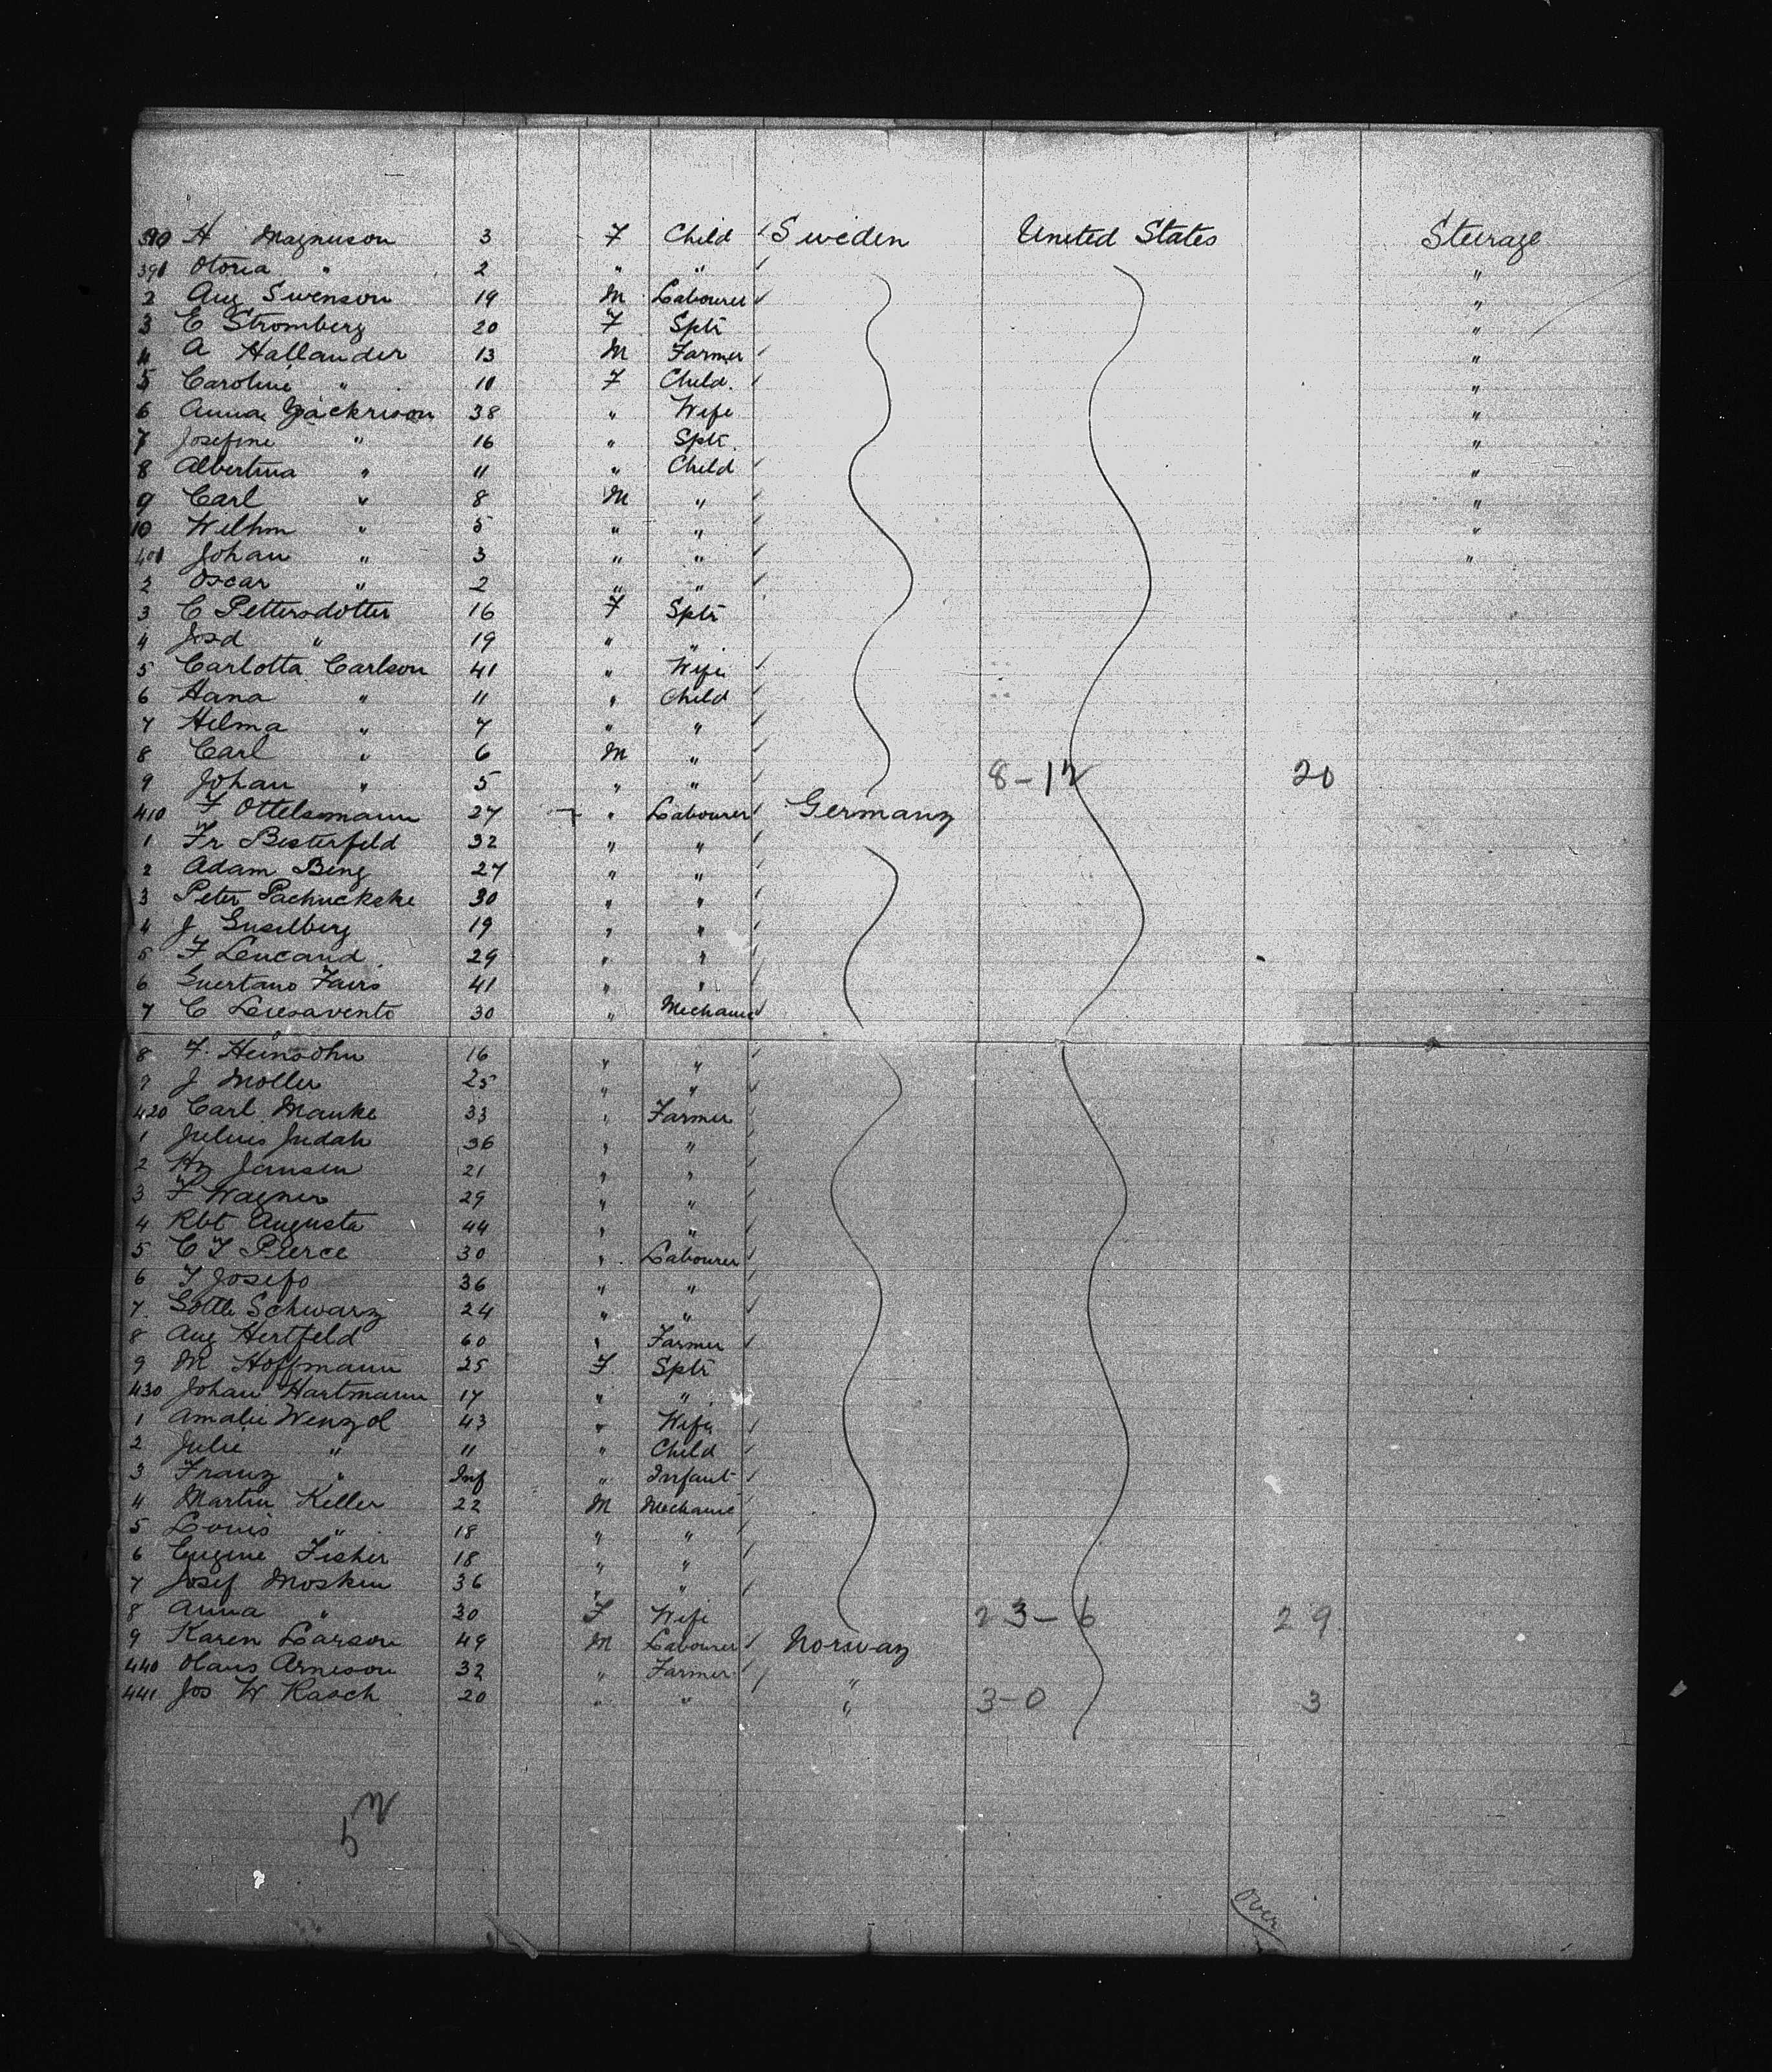 390 H Magnuson 3 F Child Sweden United States Steerage
391 Otoria " 2 " " "
2 Aug Swenson 19 M Labourer "
3 E Stromberg 20 F Sptr "
4 A Hallander 13 M Farmer "
5 Caroline " 10 F Child. "
6 Anna 38 " Wife "
7 Josefine " 16 " Sptr "
8 Albertina " 11 " Child "
9 Carl " 8 M " "
10 Welhm " 5 " " "
401 Johan " 3 " " "
2 Oscar " 2 " "
3 C Pettersdotter 16 F Sptr
4 Josd " 19 " "
5 Carlotta Carlson 41 " Wife
6 Hana " 11 " Child
7 Hilma " 7 " "
8 Carl " 6 M "
9 Johan " 5 " " 8-12 20
410 F Ottelsmann 27 " Labourer Germany
1 Fr Besterfeld 32 " "
2 Adam Bing 27 " "
3 Peter Pachuckske 30 " "
4 J Guselberg 19 " "
5 F Leucand 29 " "
6 41 " "
7 C 30 " Mechanic
8 F. Heinsohn 16 " "
9 J Moller 25 " "
420 Carl Manke 33 " Farmer
1 Julius Judah 36 " "
2 Hy Jansen 21 " "
3 F Wagner 29 " "
4 Rbt Augusta 44 " "
5 C F Pierce 30 " Labourer
6 Josefo 36 " "
7. Gottl Schwarz 24 " "
8 Aug Hertfeld 60 " Farmer
9 M Hoffmann 25 F Sptr
430 Johan Hartmann 17 " "
1 Amalie Wenzol 43 " Wife
2 Julie " 11 " Child
3 Franz " Inf " Infant
4 Martin Keller 22 M Mechanic
5 Louis " 18 " "
6 Eugene Fisher 18 " "
7 Josef Moskin 36 " "
8 Anna " 30 F Wife 23-6 29
9 Karen Larson 49 M Labourer Norway
440 Olaus Arneson 32 " Farmer "
441 Jos W Rasch 20 " " " 3-0 3
Over